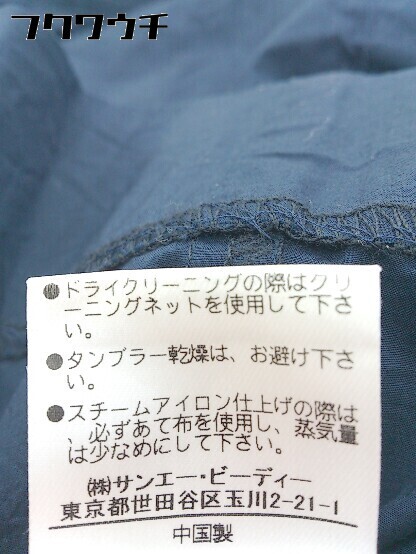 フクワウチ
●ドライクリーニングの際はクリ
ーニングネットを使用して下さ
い。
●タンブラー乾燥は、お避け下さ
い。
●スチームアイロン仕上げの際は
、必ずあて布を使用し、蒸気量
は少なめにして下さい。
㈱サンエー・ビーディー
東京都世田谷区玉川2-21-1
中国製